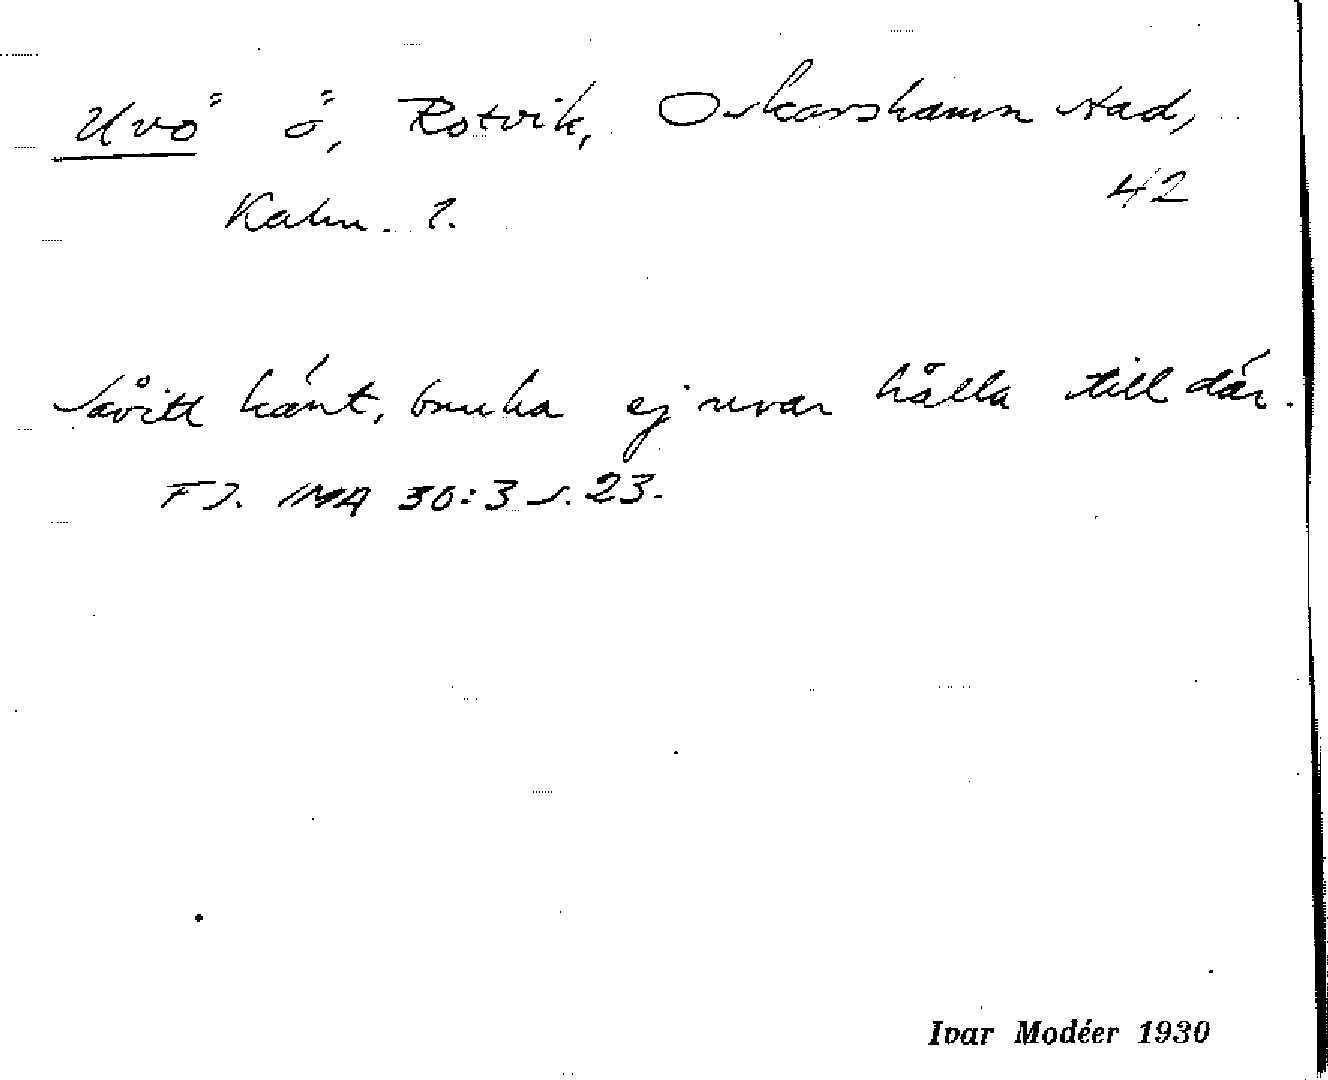 Uvö ö, Rotvik, Oskarshamn stad,
Kalm. l. 42
Såvitt känt, bruka ej uvar hålla till där.
FJ. IMA 30:3 s. 23.
Ivar Modéer 1930